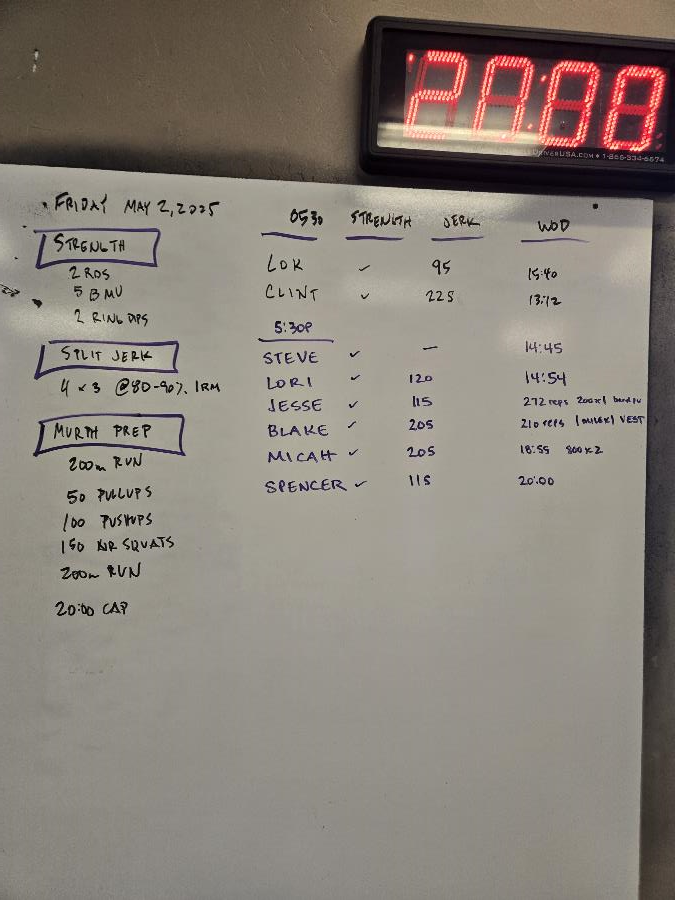 20:00
DRIVERUSA.COM • 1-866-334-6674
FRIDAY MAY 2, 2025
STRENGTH
2 RDS
5 BMU
2 RING DIPS
SPLIT JERK
4 x 3 @80-90% 1RM
MURPH PREP
200m RUN
50 PULLUPS
100 PUSHUPS
150 AIR SQUATS
200m RUN
20:00 CAP
0530 STRENGTH JERK WOD
LOK ✓ 95 15:40
CLINT ✓ 225 13:12
5:30P
STEVE ✓ — 14:45
LORI ✓ 120 14:54
JESSE ✓ 115 272 reps 200x1
BLAKE ✓ 205 210 reps VEST
MICAH ✓ 205 18:55 800x2
SPENCER ✓ 115 20:00